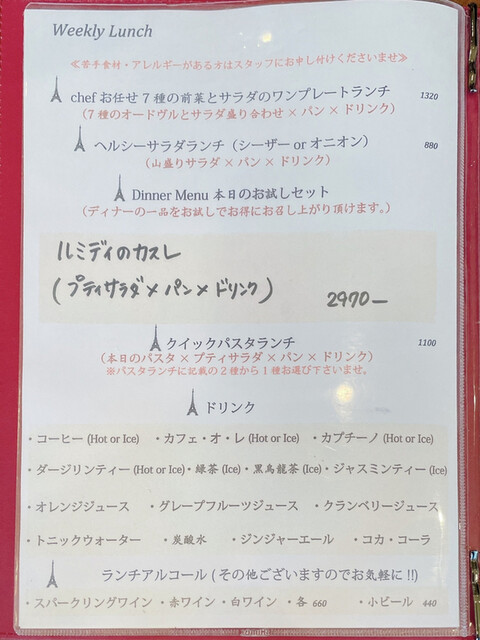 Weekly Lunch
≪苦手食材・アレルギーがある方はスタッフにお申し付けくださいませ≫
chef お任せ 7 種の前菜とサラダのワンプレートランチ 1320
（7 種のオードヴルとサラダ盛り合わせ × パン × ドリンク）
ヘルシーサラダランチ（シーザー or オニオン） 880
（山盛りサラダ × パン × ドリンク）
Dinner Menu 本日のお試しセット
（ディナーの一品をお試しでお得にお召し上がり頂けます。）
ルミディのカスレ
(プティサラダ×パン×ドリンク) 2970—
クイックパスタランチ 1100
（本日のパスタ × プティサラダ × パン × ドリンク）
※パスタランチに記載の２種から１種お選び下さいませ。
ドリンク
・コーヒー (Hot or Ice) ・カフェ・オ・レ (Hot or Ice) ・カプチーノ (Hot or Ice)
・ダージリンティー (Hot or Ice)・緑茶 (Ice)・黒烏龍茶 (Ice)・ジャスミンティー (Ice)
・オレンジジュース ・グレープフルーツジュース ・クランベリージュース
・トニックウォーター ・炭酸水 ・ジンジャーエール ・コカ・コーラ
ランチアルコール ( その他ございますのでお気軽に !!)
・スパークリングワイン ・赤ワイン ・白ワイン ・各 660 ・小ビール 440